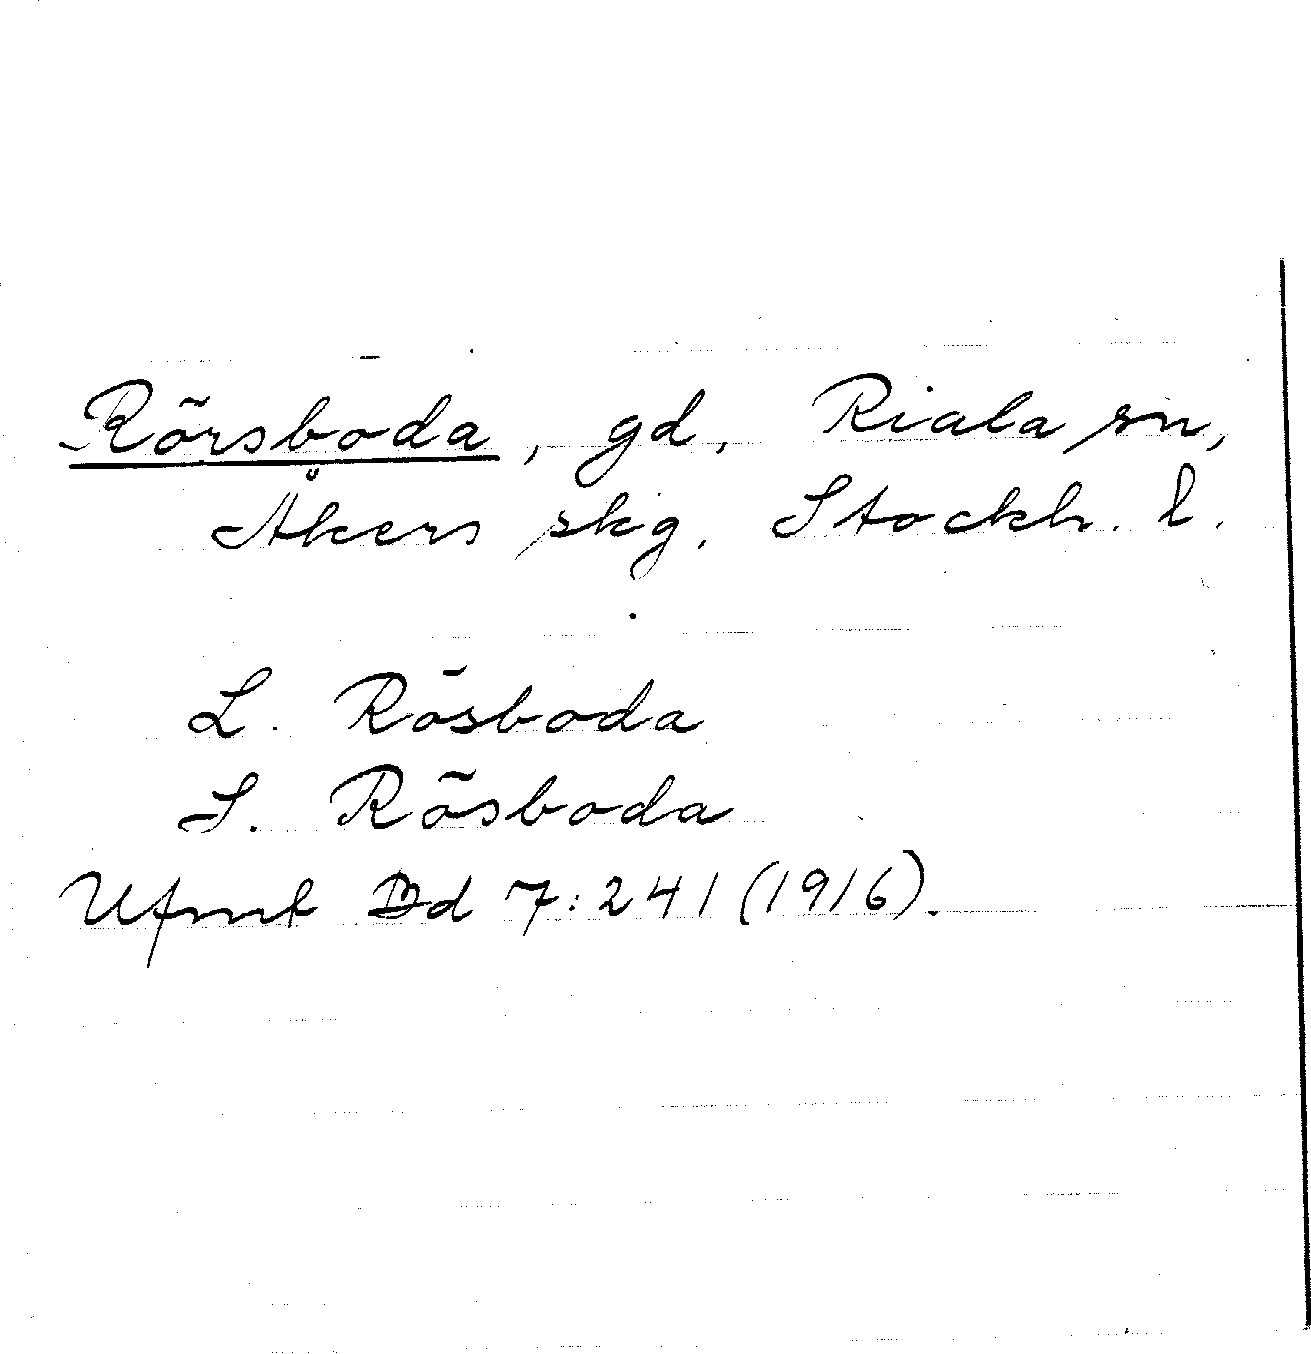 Rörsboda, gd, Riala sn,
Åkers skg, Stockh. l.
L. Rösboda
S. Rösboda
Ufmt Bd 7:241 (1916).